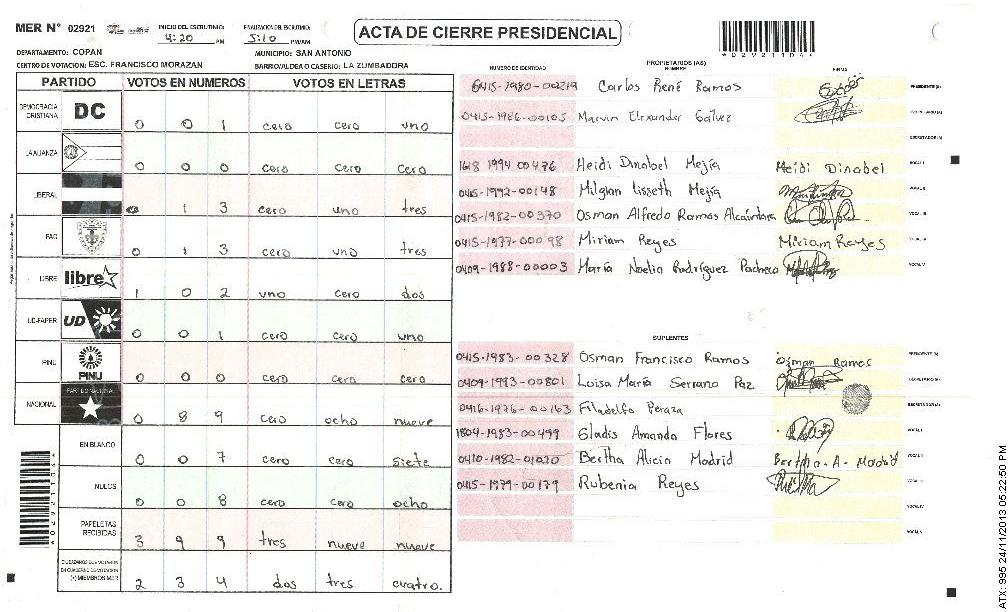 MER N° 02921
INICIO DEL ESCRUTINIO: 4:20 PM
FINALIZACION DEL ESCRUTINIO: 5:10 PM/AM
ACTA DE CIERRE PRESIDENCIAL
*02921104*
DEPARTAMENTO: COPAN
MUNICIPIO: SAN ANTONIO
CENTRO DE VOTACION: ESC. FRANCISCO MORAZAN
BARRIO/ALDEA O CASERIO: LA ZUMBADORA
PARTIDO VOTOS EN NUMEROS VOTOS EN LETRAS
DEMOCRACIA CRISTIANA DC 0 0 1 cero cero uno
LA ALIANZA 0 0 0 cero cero cero
LIBERAL 0 1 3 cero uno tres
PAC 0 1 3 cero uno tres
LIBRE libre 1 0 2 uno cero dos
UD-FAPER UD 0 0 1 cero cero uno
PINU PINU 0 0 0 cero cero cero
NACIONAL PARTIDO NACIONAL 0 8 9 cero ocho nueve
EN BLANCO 0 0 7 cero cero siete
NULOS 0 0 8 cero cero ocho
PAPELETAS RECIBIDAS 3 9 9 tres nueve nueve
CIUDADANOS QUE VOTARON EN CUADERNO DE VOTACION (+) MIEMBROS MER 2 3 4 dos tres cuatro.
NUMERO DE IDENTIDAD PROPIETARIOS (AS) NOMBRE FIRMA
0415-1980-00219 Carlos René Ramos PRESIDENTE (A)
0415-1986-00105 Marvin Elexander Gálvez SECRETARIO (A)
ESCRUTADOR (A)
1618 1994 00476 Heidi Dinabel Mejía Heidi Dinabel VOCAL I
0415-1992-00148 Milgian Lisseth Mejía VOCAL II
0415-1982-00370 Osman Alfredo Ramos Alcántara VOCAL III
0415-1977-00098 Miriam Reyes Miriam Reyes VOCAL IV
0409-1988-00003 María Noelia Rodríguez Pacheco VOCAL V
SUPLENTES
0415-1983-00328 Osman Francisco Ramos Osman Ramos PRESIDENTE (A)
0409-1993-00801 Loisa María Serrano Paz SECRETARIO (A)
0416-1976-00163 Filadelfo Peraza ESCRUTADOR (A)
1804-1983-00499 Gladis Amanda Flores VOCAL I
0410-1982-01020 Bertha Alicia Madrid Bertha-A-Madrid VOCAL II
0415-1979-00179 Rubenia Reyes VOCAL III
VOCAL IV
VOCAL V
*02921104*
ATX: 995 24/11/2013 05:22:50 PM